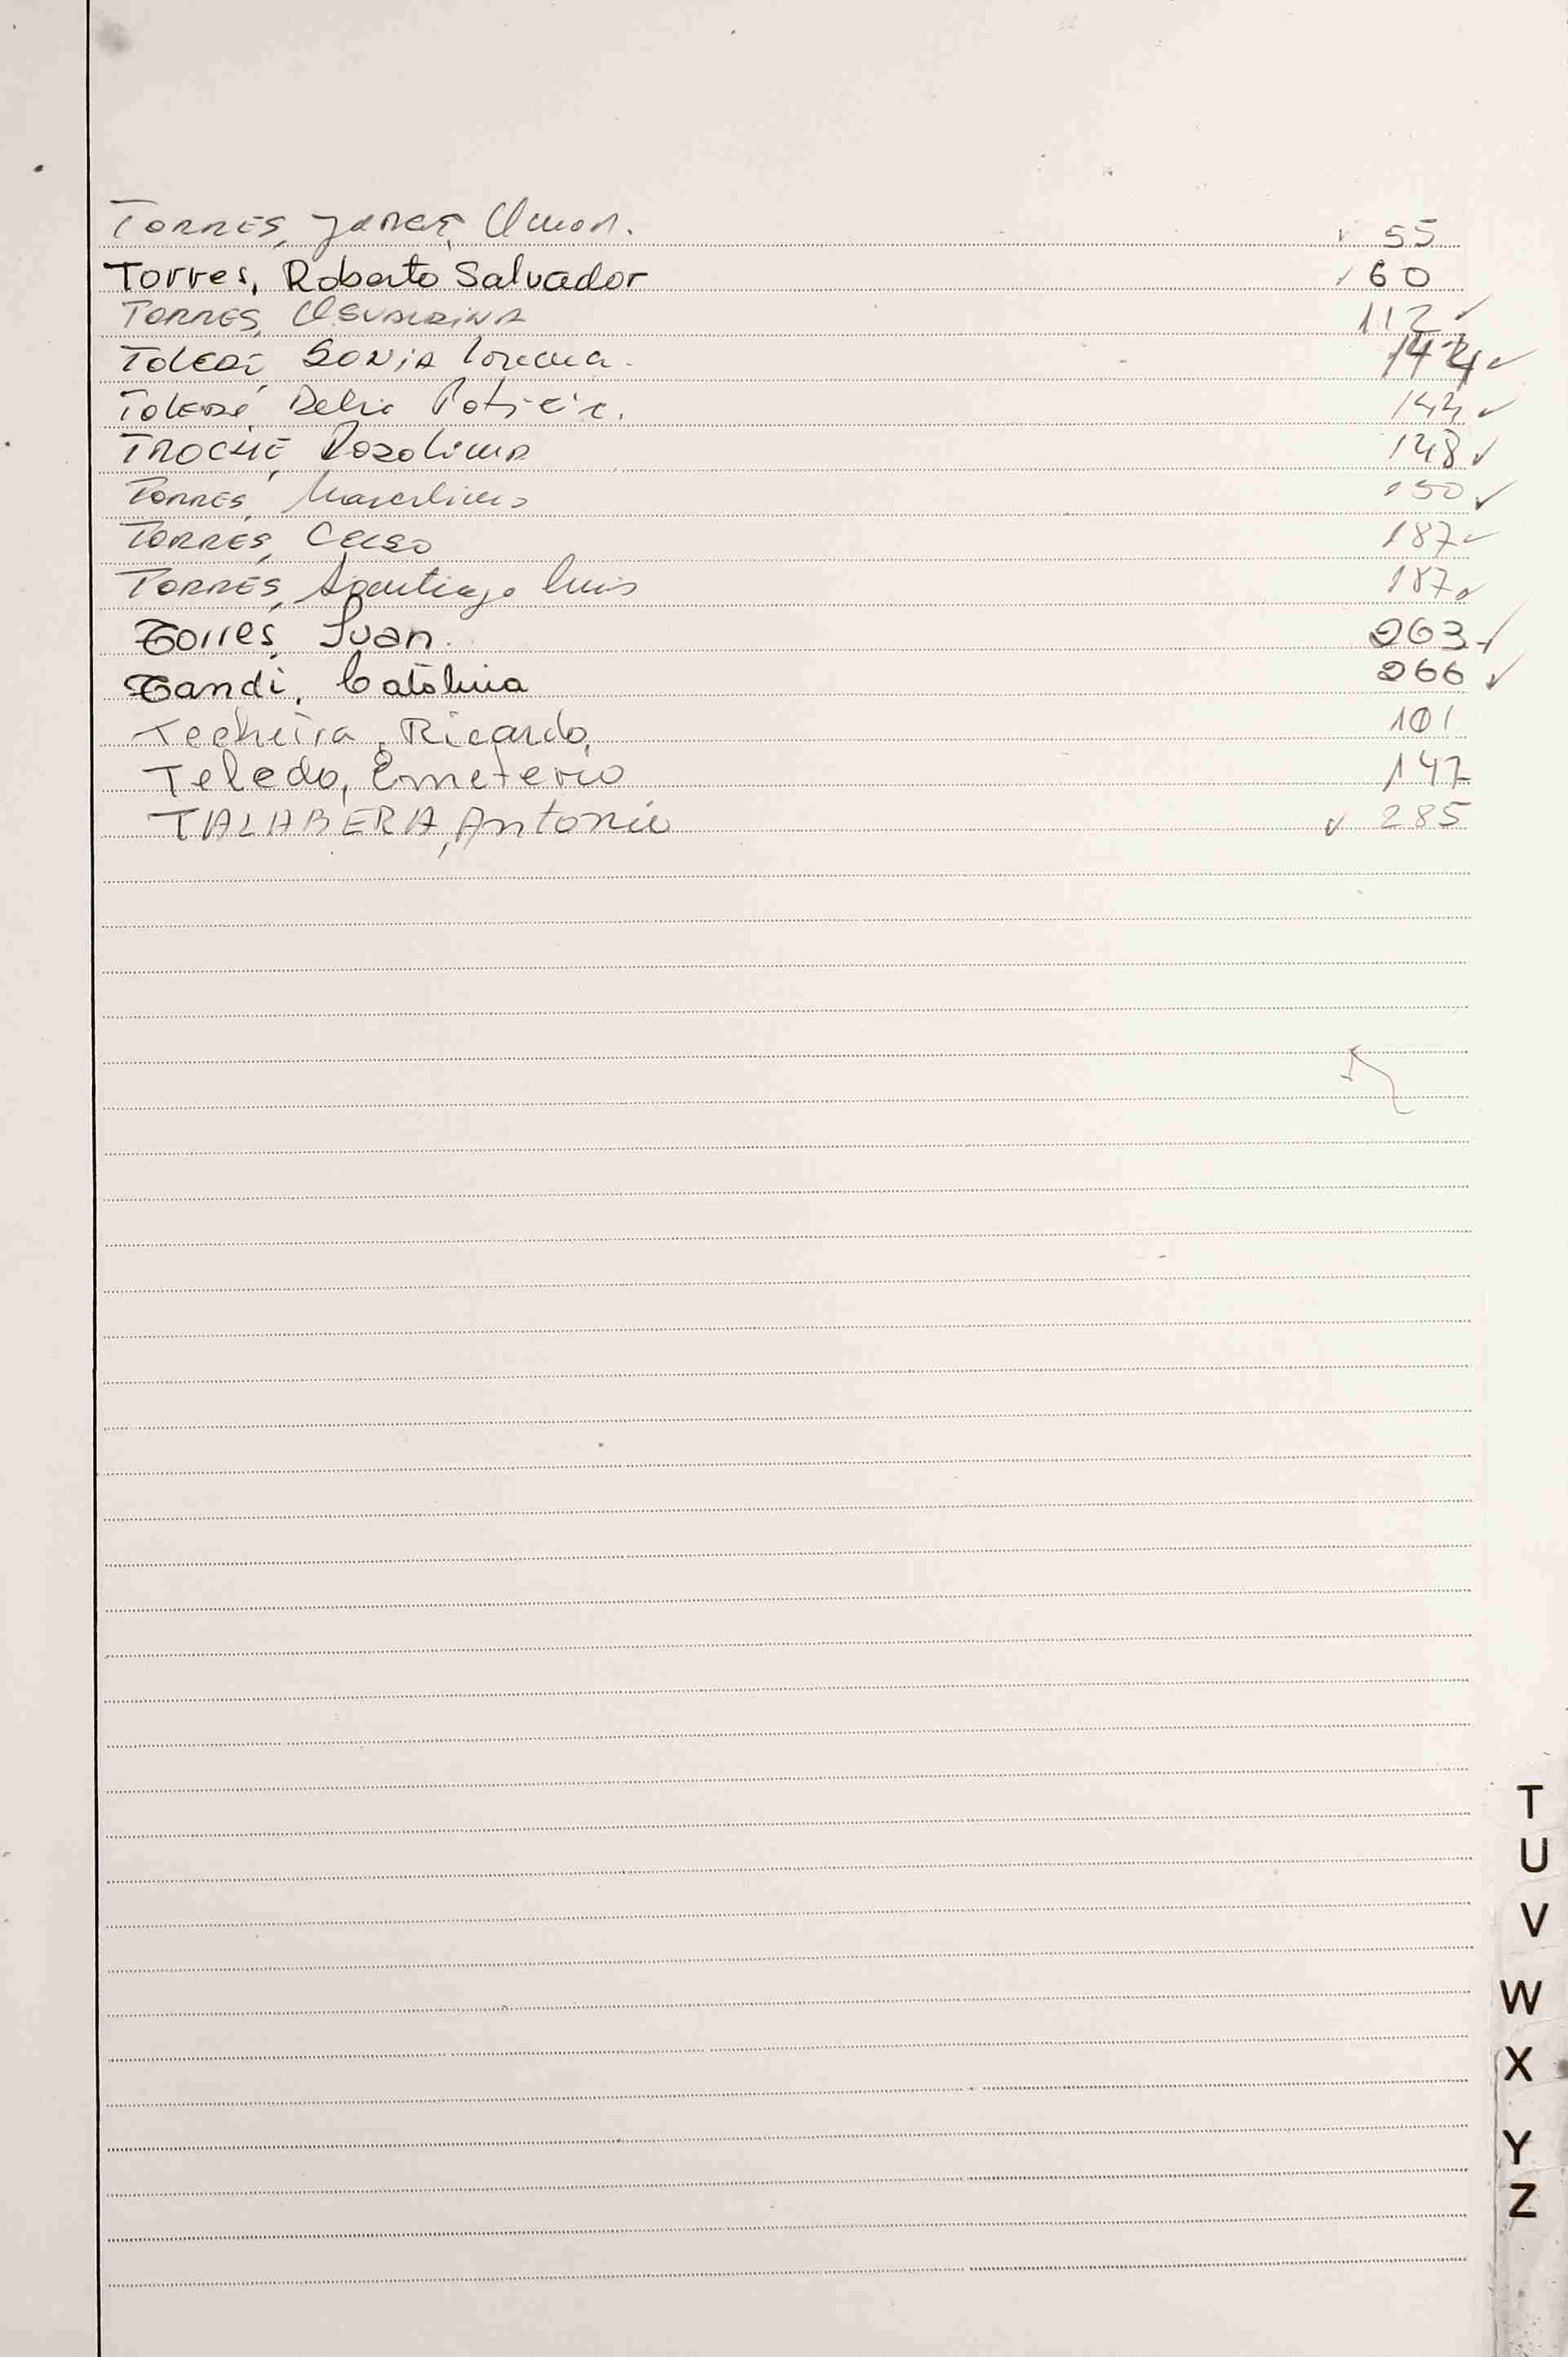 TORRES, Jorge Omar. ✓ 55
Torres, Roberto Salvador ✓ 60
TORRES, Osvaldina 112 ✓
Toledi, SONIA Lorena. 144 ✓
Toledi, Delia Patricia. 144 ✓
TROCHE, Rozolima 148 ✓
TORRES, Marcelino 150 ✓
TORRES, Celso 187 ✓
TORRES, Santiago Luis 187 ✓
Torres, Juan. 263 ✓
Tandi, Catalina 266 ✓
Techeira, Ricardo, 101
Teledo, Emeterio 147
TALABERA, Antonio ✓ 285
T
U
V
W
X
Y
Z